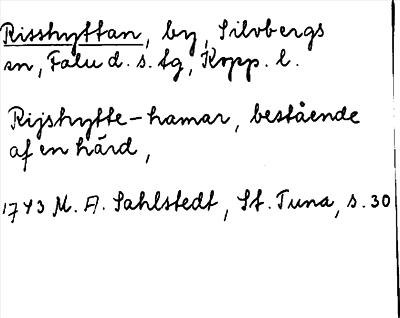 Risshyttan, by, Silvbergs
sn, Falu d. s. tg, Kopp. l.
Rijshytte-hamar, bestående
af en härd,
1743 M. A. Sahlstedt, St. Tuna, s. 30